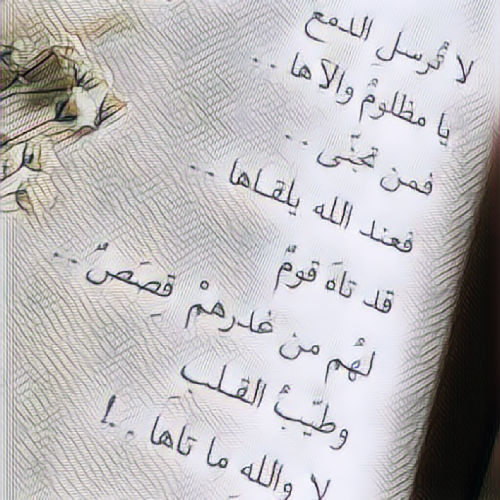 لا تُرسلِ الدمع
يا مظلومُ والآها ..
فمن تجنّى ..
فعند الله يلقاها ..
قد تاهَ قومٌ
لهُم من غدرهمْ قِصَصٌ ..
وطيّبُ القلبِ
لا واللهِ ما تاهَا ..!